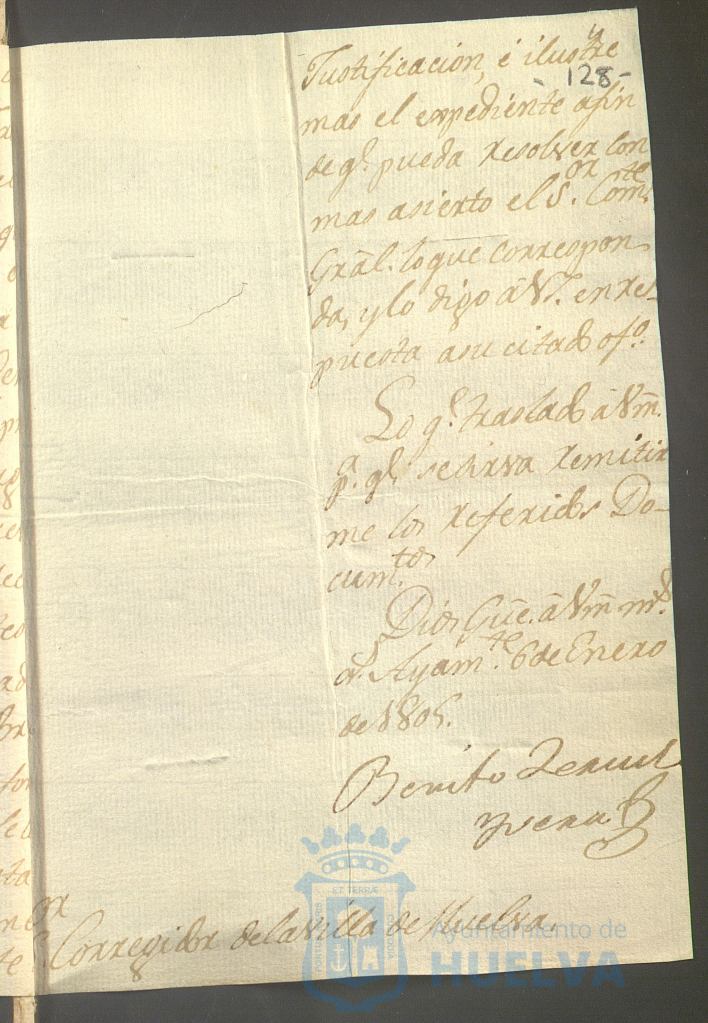 Justificación, é ilustre
- 128 -
mas el expediente afin
de q.e pueda resolver con
mas asierto el S.or Com.te
Grāl. lo que correspon
da, y lo digo â V.S. en res-
puesta a su citado of.o
Lo q.e traslado â Vm̄.
p.a q.e se sirva remitir
me los referidos Do-
cum.tos
Dios Gūe. â Vm̄ m.s
a.s Ayam.te 6 de Enero
de 1805.
Benito
y vera
S.or Corregidor de la Villa de Huelva.
ET TERRÆ
Ayuntamiento de
HUELVA